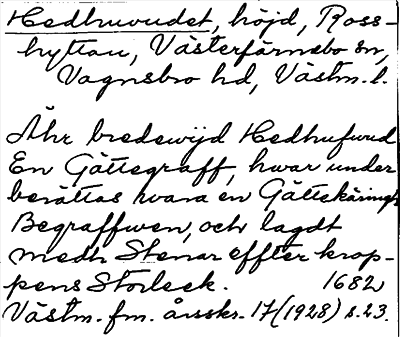 Hedhuvudet, höjd, Ross-
hyttan, Västerfärnebo sn,
Vagnsbro hd, Västm. l.
Åhr bredewijd Hedhufwud
En Gåttegraff, hwar under
berättas wara en Gåttekäringh
Begraffwen, och lagdt
medh Stenar effter krop-
pens Storleek. 1682
Västm. fm. årsskr. 17 (1928) s. 23.